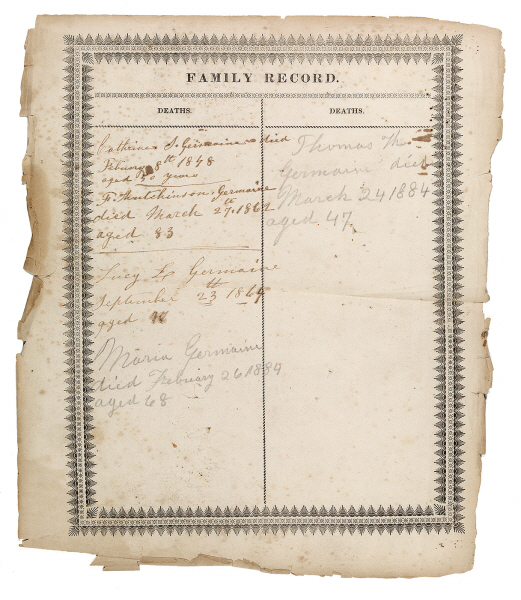 FAMILY RECORD.
DEATHS.
Catherine S. Germaine died
Februay 8th 1848
aged 50 years
F. Hutchinson Germaine
died March 27th 1862
aged 83
Lucy L Germaine
September 23th 1864
aged
Maria Germaine
died February 26 1884
aged 68
DEATHS.
Thomas
Germaine died
March 24 1884
aged 47